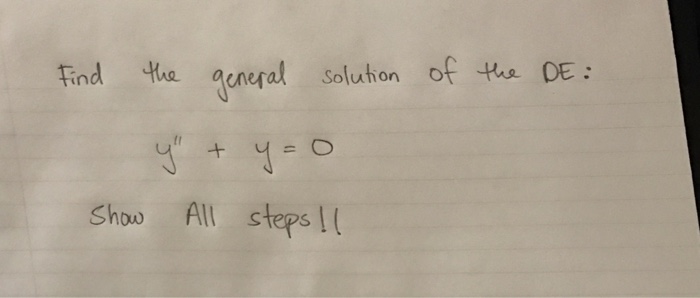 Find the general solution of the DE:
y" + y = 0
Show All steps!!